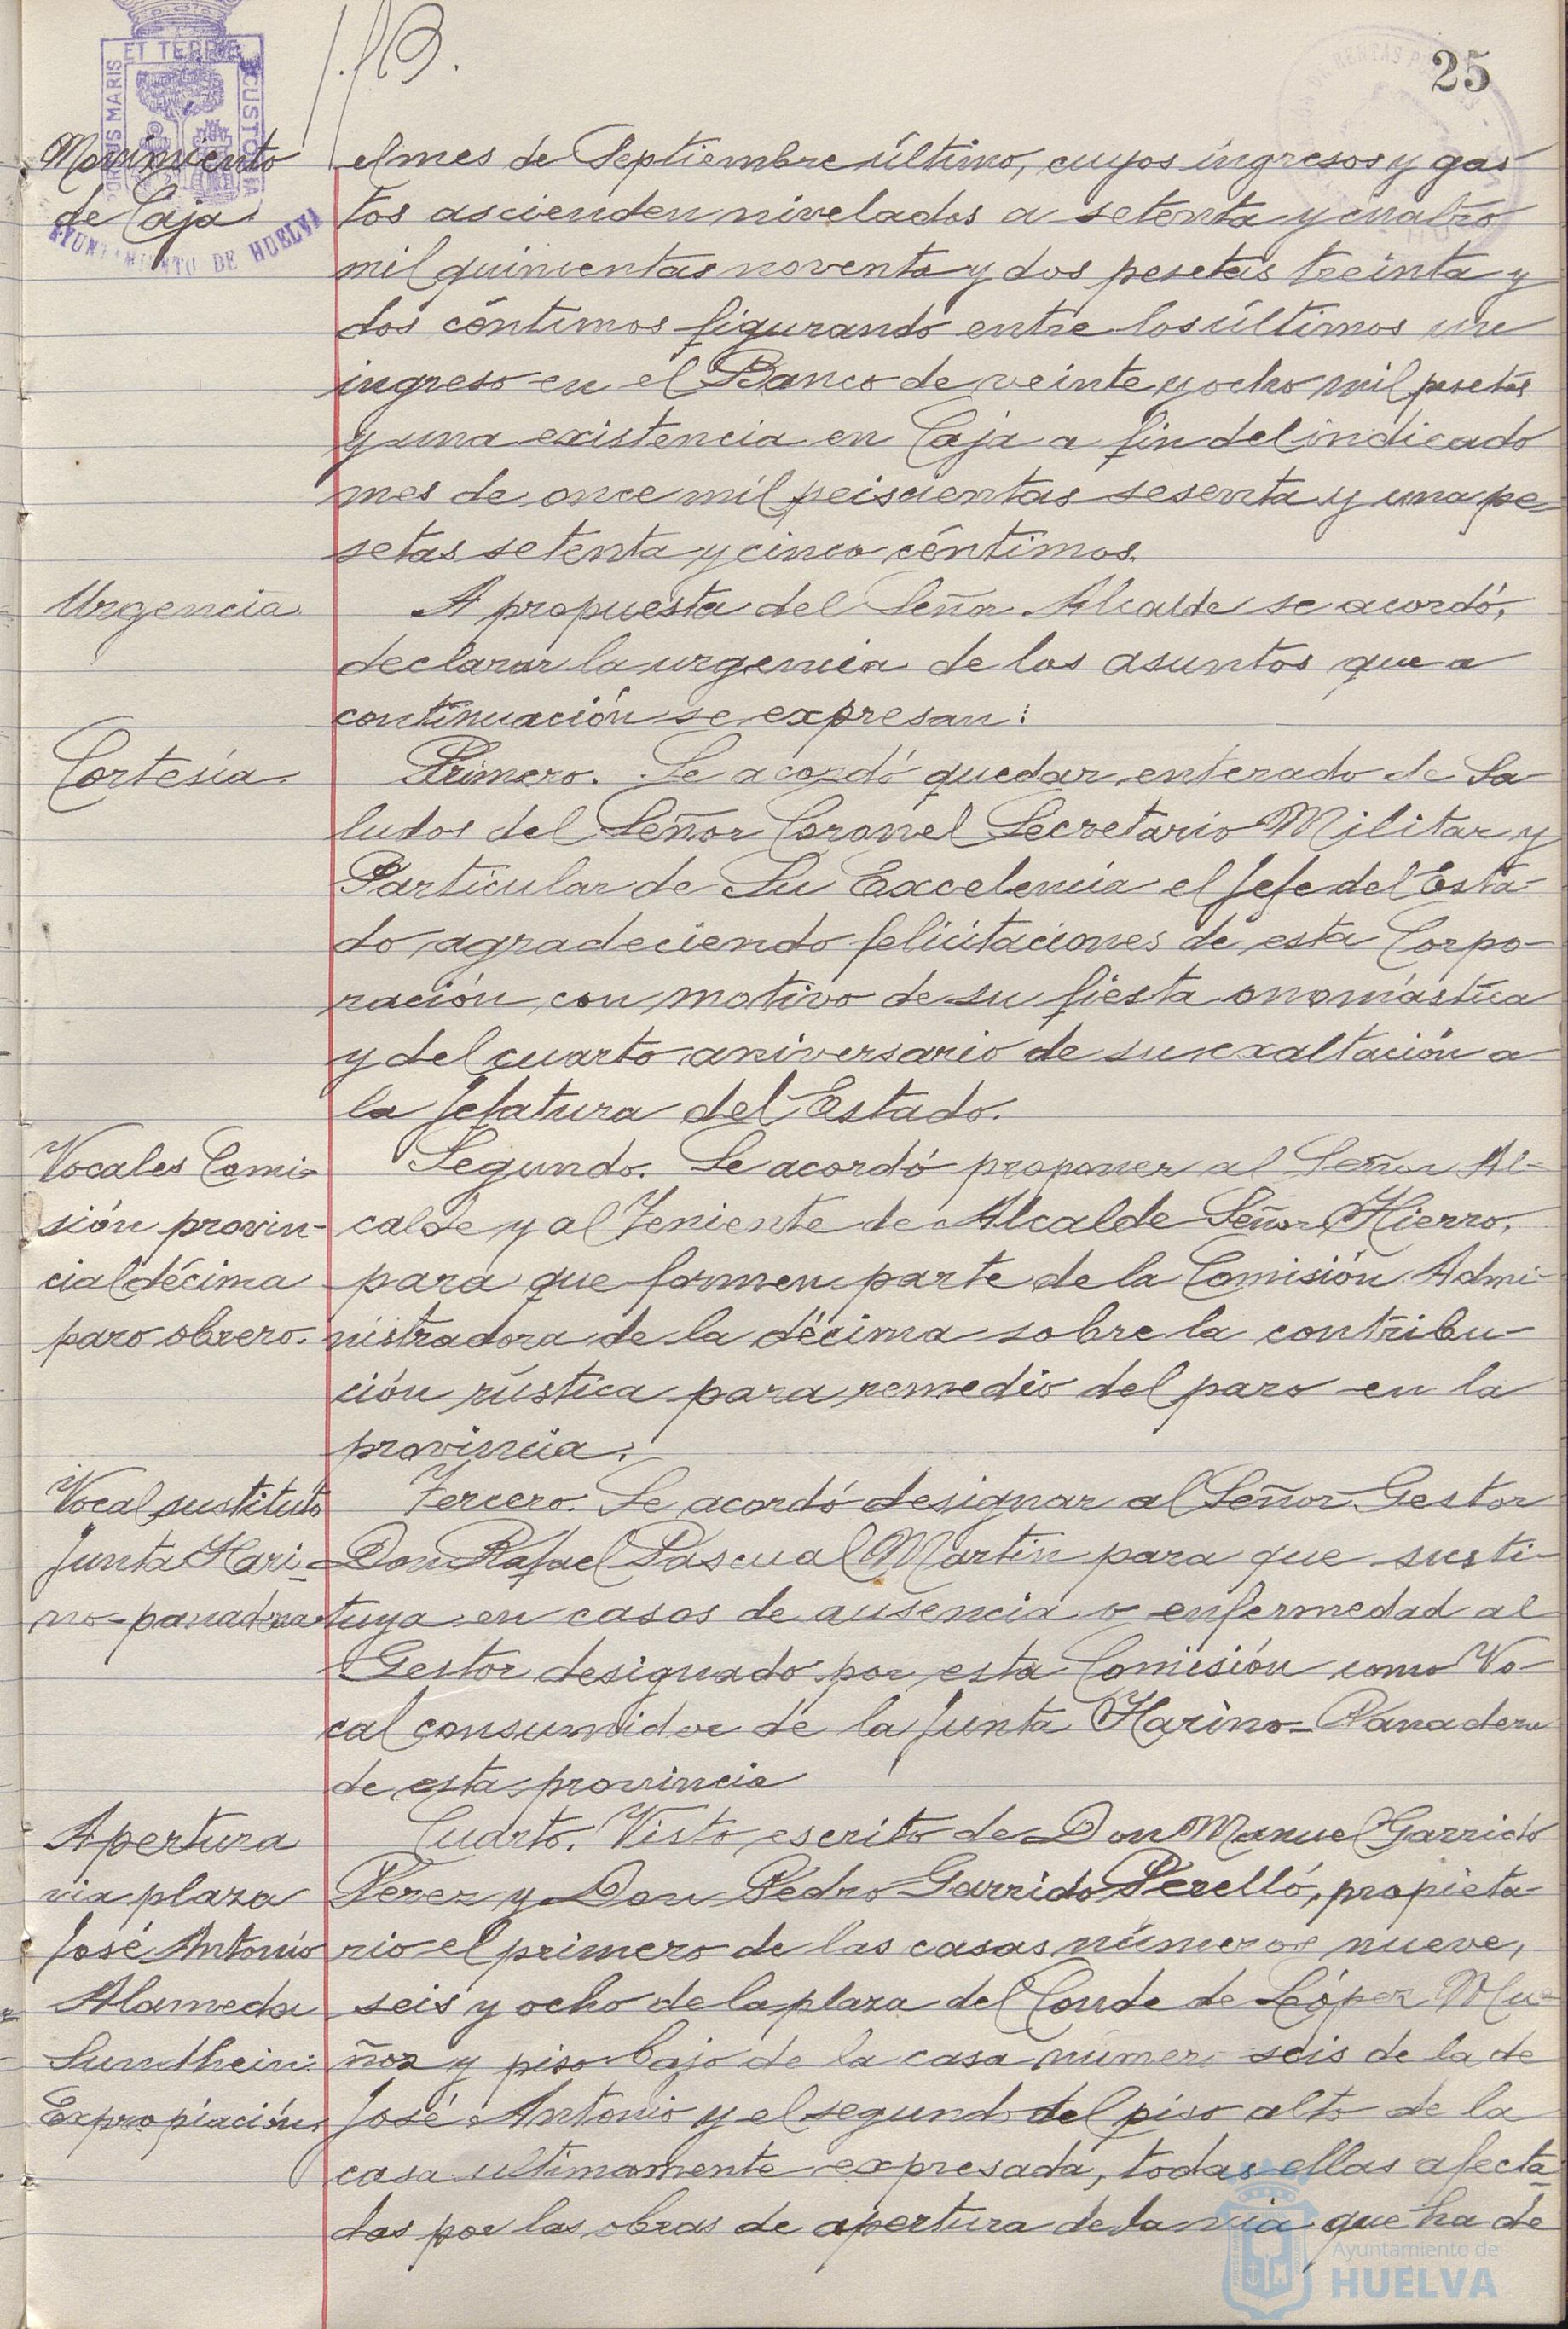 25
Movimiento
de Caja.
el mes de Septiembre último, cuyos ingresos y gas
tos ascienden nivelados a setenta y cuatro
mil quinientas noventa y dos pesetas treinta y
dos céntimos figurando entre los últimos un
ingreso en el Banco de veinte y ocho mil pesetas
y una existencia en Caja a fin del indicado
mes de once mil seiscientas sesenta y una pe-
setas setenta y cinco céntimos.
Urgencia
A propuesta del Señor Alcalde se acordó,
declarar la urgencia de los asuntos que a
continuación se expresan:
Cortesía.
Primero. Se acordó quedar enterado de Sa-
ludos del Señor Coronel Secretario Militar y
Particular de Su Excelencia el Jefe del Esta-
do agradeciendo felicitaciones de esta Corpo-
ración con motivo de su fiesta onomástica
y del cuarto aniversario de su exaltación a
la Jefatura del Estado.
Vocales Comi-
sión provin-
cial décima
paro obrero.
Segundo. Se acordó proponer al Señor Al-
calde y al Teniente de Alcalde Señor Hierro,
para que formen parte de la Comisión Admi-
nistradora de la décima sobre la contribu-
ción rústica para remedio del paro en la
provincia.
Vocal sustituto
Junta Hari-
no-panadera
Tercero. Se acordó designar al Señor Gestor
Don Rafael Pascual Martin para que susti-
tuya en casos de ausencia o enfermedad al
Gestor designado por esta Comisión como Vo-
cal consumidor de la Junta Harino-Panadera
de esta provincia
Apertura
via plaza
José Antonio
Alameda
Sundhein:
Expropiación.
Cuarto. Visto escrito de Don Manuel Garrido
Pérez y Don Pedro Garrido Perelló, propieta-
rio el primero de las casas números nueve,
seis y ocho de la plaza del Conde de López Mu-
ñoz y piso bajo de la casa número seis de la de
José Antonio y el segundo del piso alto de la
casa ultimamente expresada, todas ellas afecta-
das por las obras de apertura de la via que ha de
ET TERRE CUSTODIA
MARIS
AYUNTAMIENTO DE HUELVA
Ayuntamiento de
HUELVA